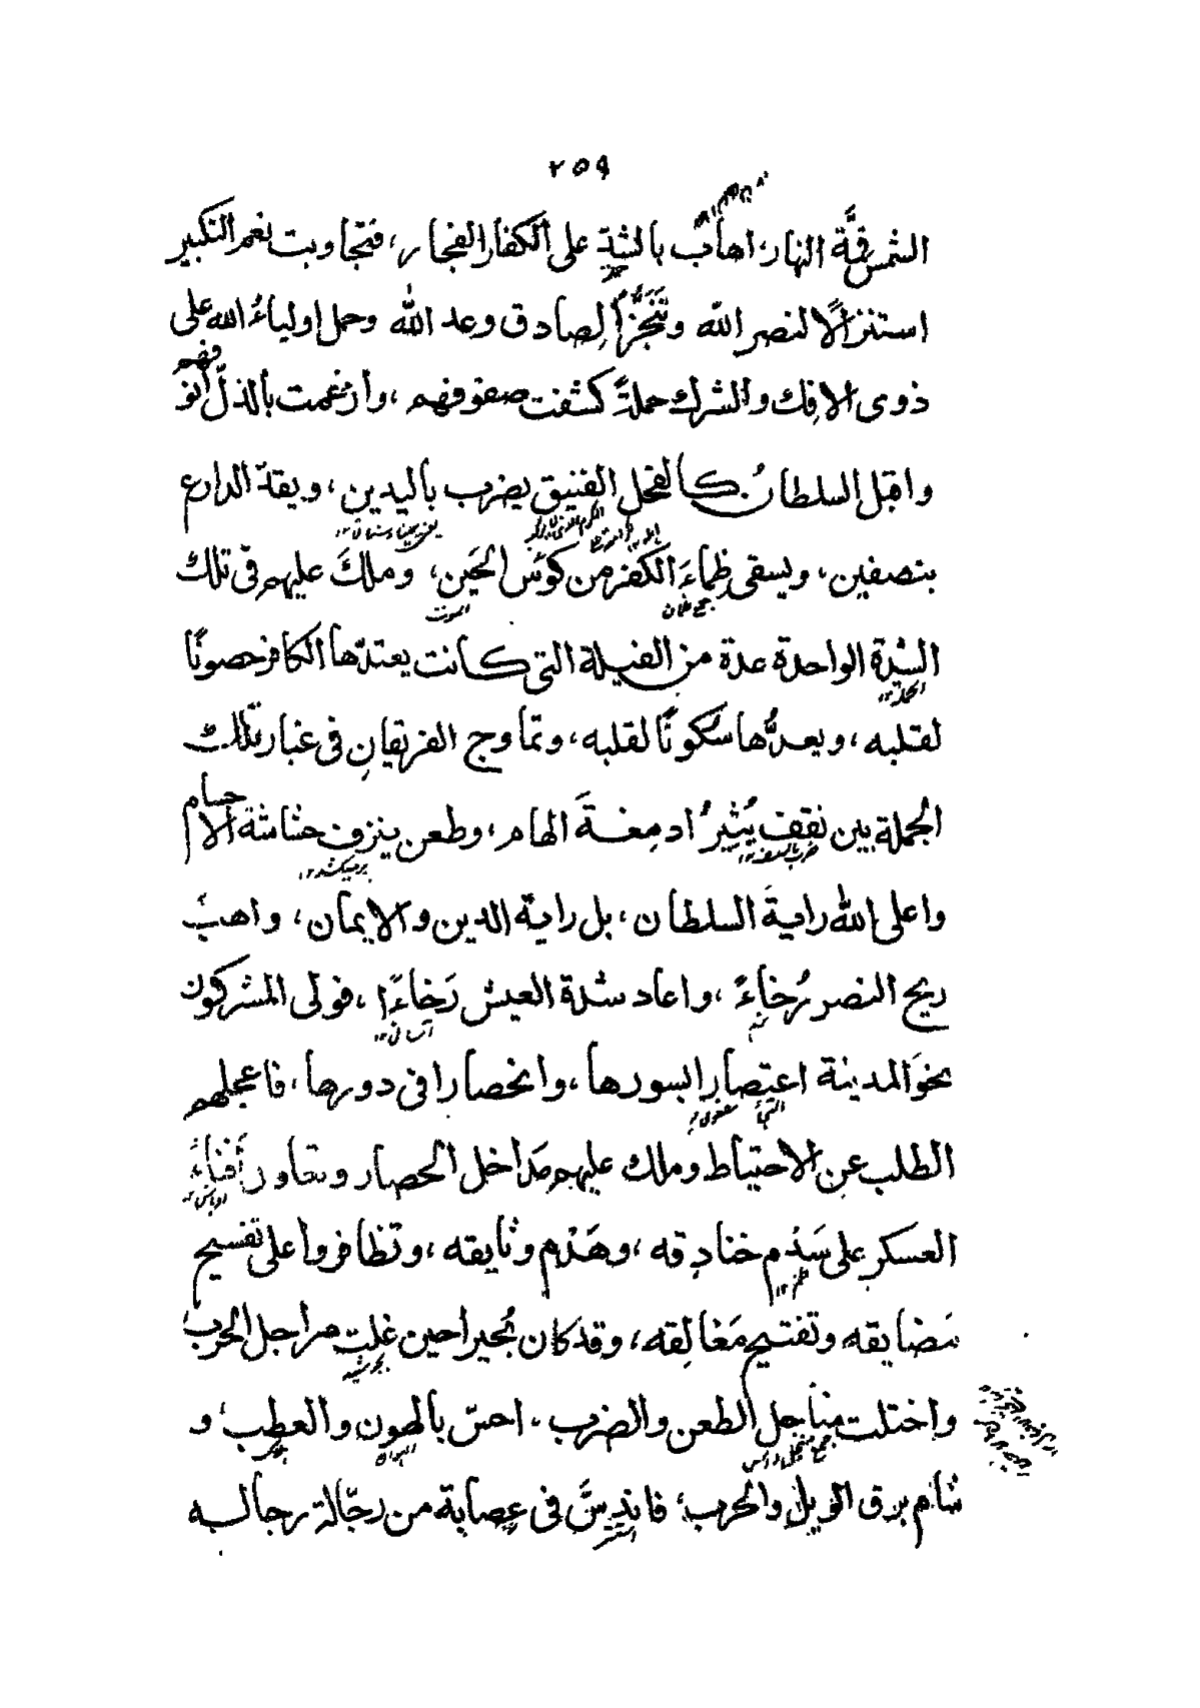 ٢٥٩
الشمس قمّة النهار، اهاب بالشدّ على الكفار الفجار، فتجاوبت نغم التكبير
استنزالًا لنصر الله وتنجّزًا لِصادق وعد الله وحمل اولياءُ الله على
ذوى الافك والشرك حملةً كشفت صفوفهم، وأرغمت بالذلّ أنوفهم
واقبل السلطان كالفحل الفنيق يضرب باليدين، ويقدّ الدارع
بنصفين، ويسقى ظِماءَ الكفر من كؤس الحَين، وملكَ عليهم فى تلك
الشدّة الواحدة عدة من الفيلة التى كانت يعتدّها الكافر حصونًا
لقلبه، ويعدُّها سكونًا لقلبه، وتماوج الفريقانِ فى غبار تلك
الجملة بين نقف يُثيرُ ادمغةَ الهام، وطعن ينزف حشاشة الاجسام
واعلى الله رايةَ السلطان، بل راية الدين والايمان، واهبّ
ريح النصر رُخاءً، واعاد شدة العيش رَخاءًا، فولى المشركون
نحوَ المدينة اعتصارا بسورها، وانحصارا فى دورها، فاعجلهم
الطلب عن الاحتياط وملك عليهم مداخل الحصار وتعاور أفناءُ
العسكر على سَدْم خنادقه، وهَدْم وثايقه، وتظافروا على تفسيح
مَضايقه وتفتيح مَغالِقه، وقد كان بُجيرا حين غلت مراجل الحرب
واختلت مناجل الطعن والضرب، احسّ بالهون والعطب، و
شام برق الويل والحرب، فاندسَّ فى عصابة من رجّالة رجاله
جمع ظمان
الموت
الحملة ١٢